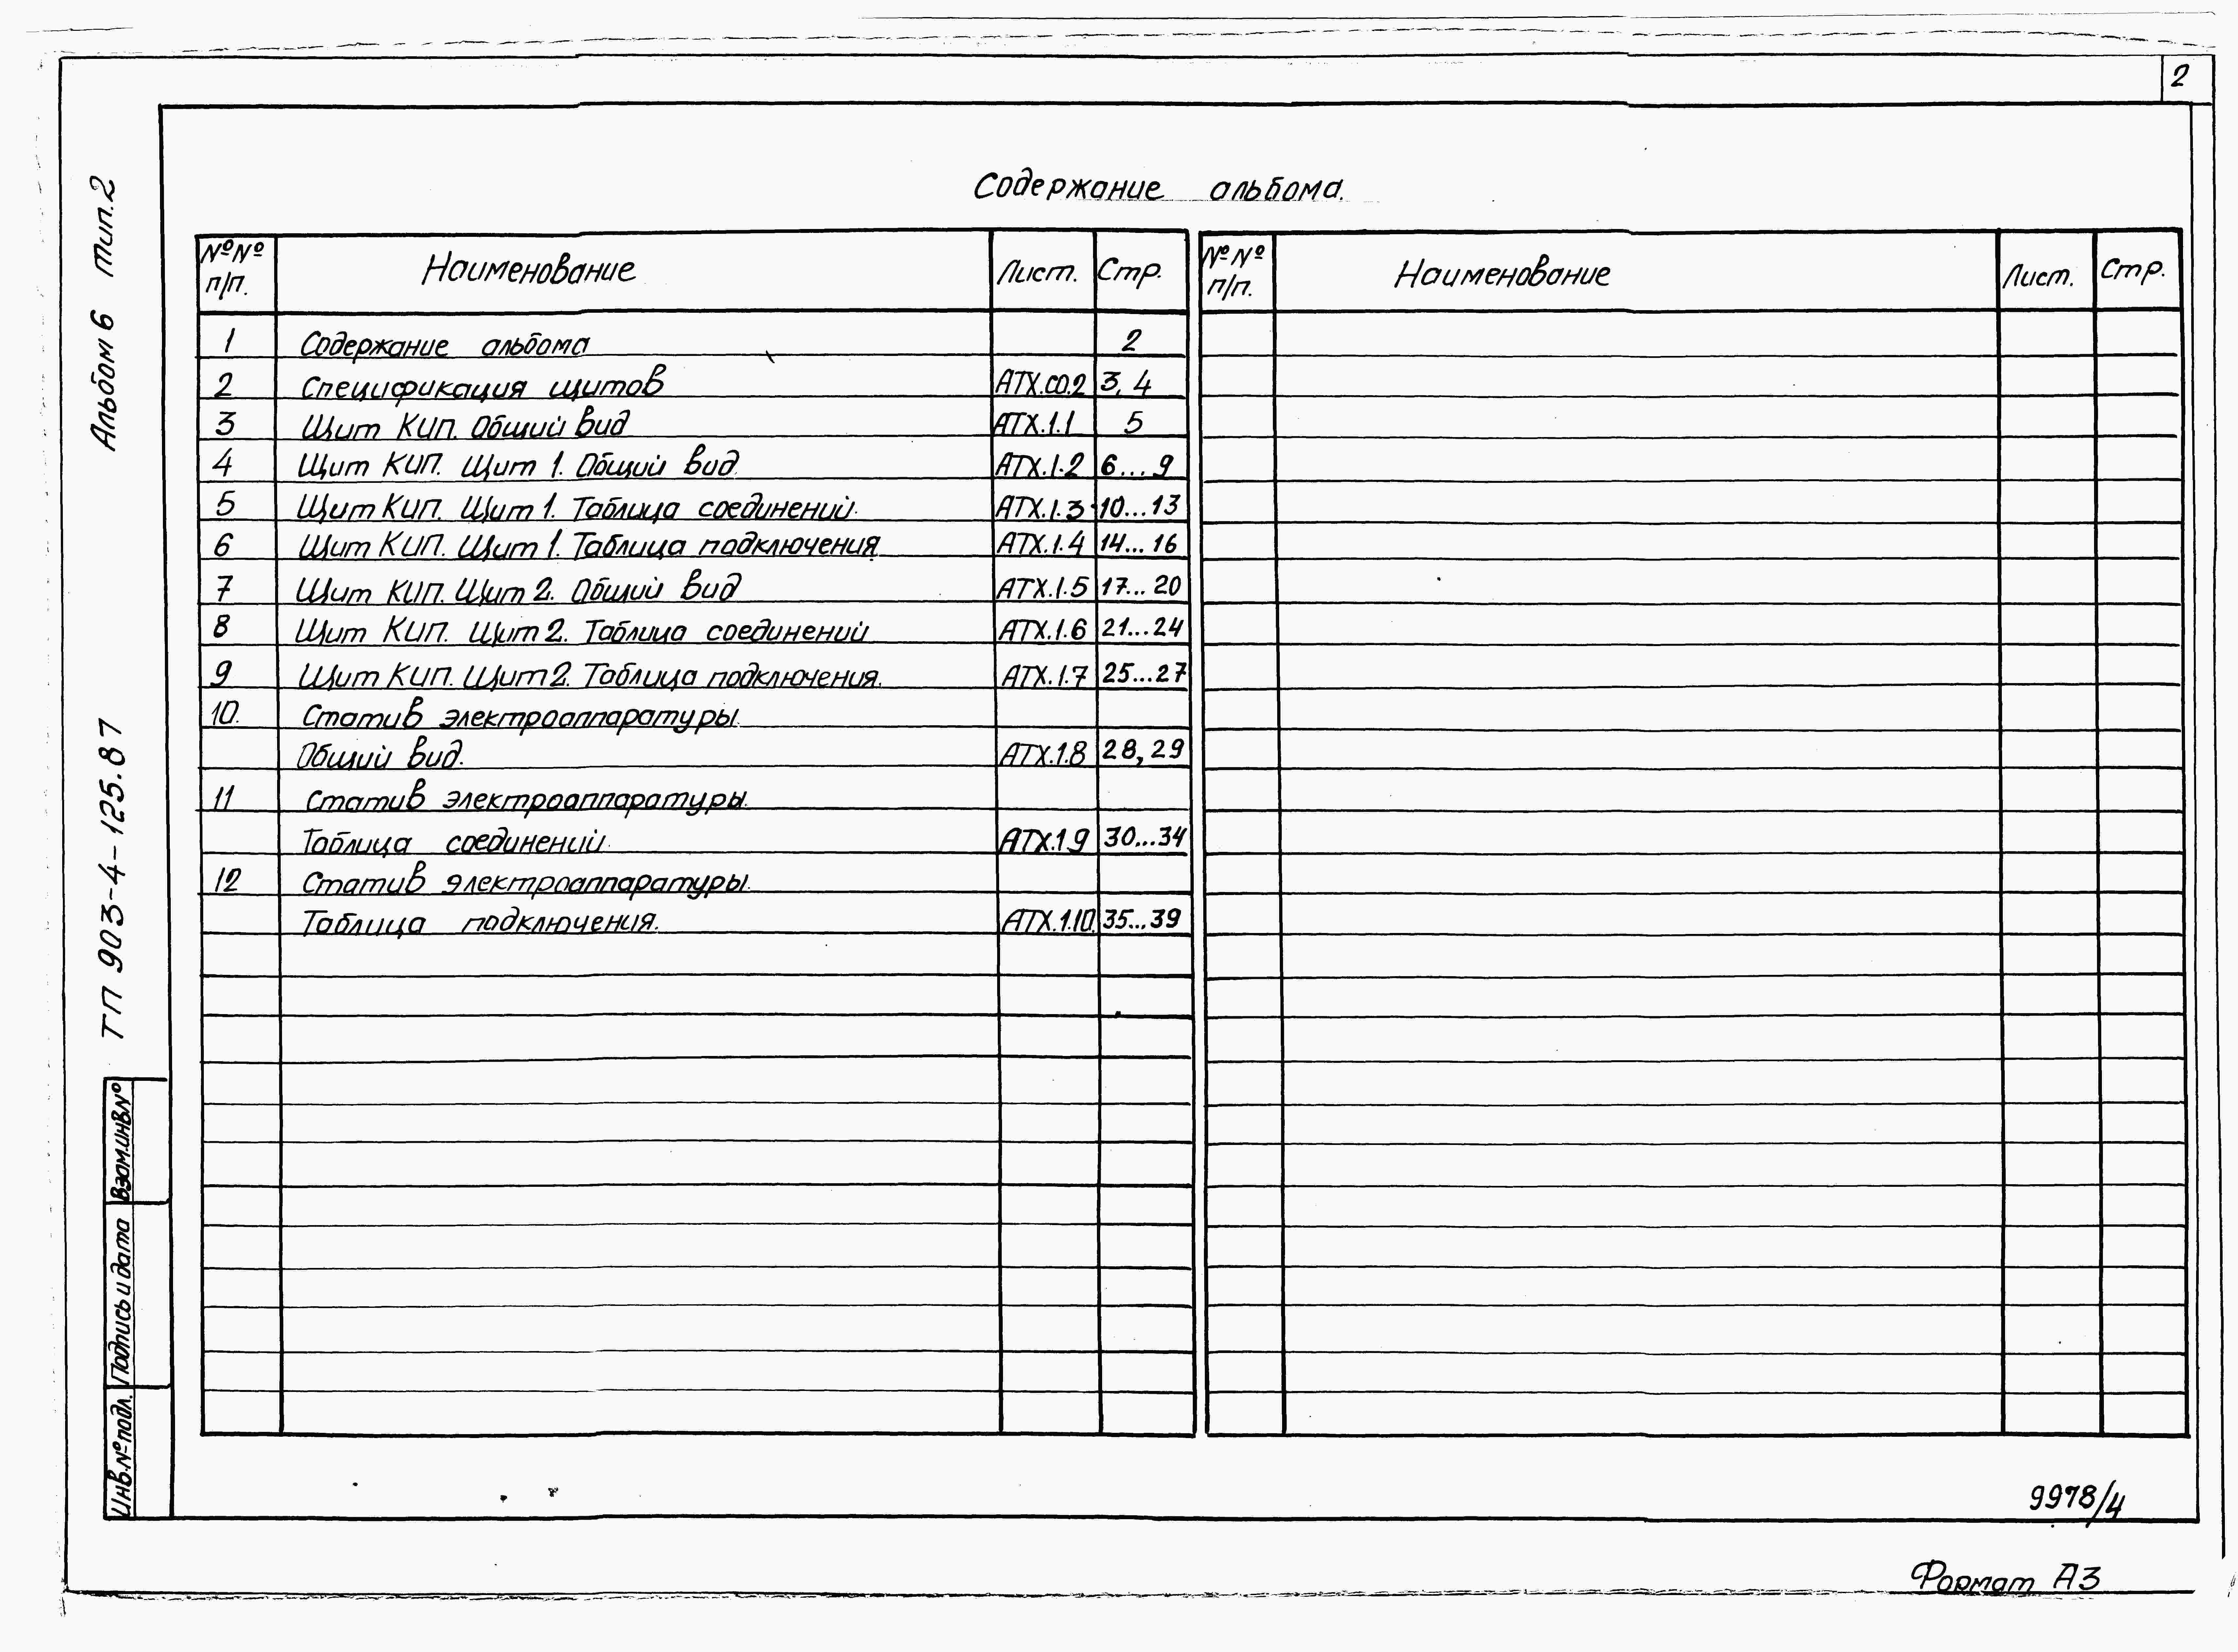 2
Содержание альбома.
№№ п/п. Наименование Лист. Стр. №№ п/п. Наименование Лист. Стр.
1 Содержание альбома 2
2 Спецификация щитов АТХ.СО.2 3, 4
3 Щит КИП. Общий вид АТХ.1.1 5
4 Щит КИП. Щит 1. Общий вид. АТХ.1.2 6...9
5 Щит КИП. Щит 1. Таблица соединений. АТХ.1.3 10...13
6 Щит КИП. Щит 1. Таблица подключения АТХ.1.4 14...16
7 Щит КИП. Щит 2. Общий вид АТХ.1.5 17...20
8 Щит КИП. Щит 2. Таблица соединений АТХ.1.6 21...24
9 Щит КИП. Щит 2. Таблица подключения. АТХ.1.7 25...27
10. Статив электроаппаратуры.
Общий вид. АТХ.1.8 28, 29
11 Статив электроаппаратуры.
Таблица соединений. АТХ.1.9 30...34
12 Статив электроаппаратуры.
Таблица подключения. АТХ.1.10. 35...39
Альбом 6 Тип.2
ТП 903-4-125.87
Взам.инв№
Подпись и дата
Инв.№подл.
9978/4
Формат А3